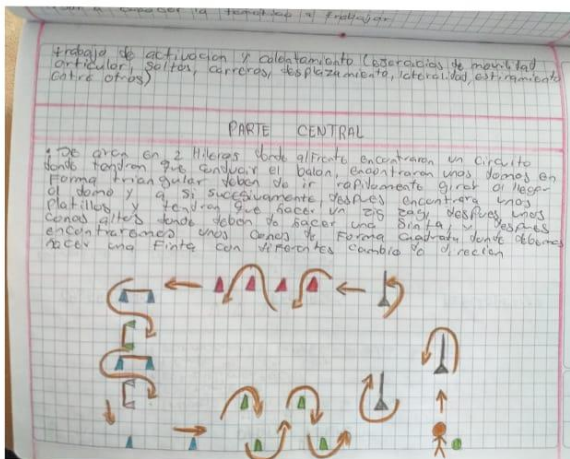 a conocer la tematica a trabajar
trabajo de activacion y calentamiento (esercicios de movilidad
articular, saltos, carreras, desplazamiento, lateralidad, estiramiento
entre otros)
PARTE CENTRAL
• De aran en 2 Hileras donde alfrente encontraron un circuito
donde tendran que conducir el balon, encontraron unos domos en
Forma triangular deben de ir rapidamente girar al llegar
al domo y a si sucesivamente, despues encontrara unos
platillos y tendran que hacer un zig zag, despues unos
conos altos donde deben de hacer una finta, y despues
encontraremos unos conos de Forma cuadrata donde debemos
hacer una Finta con diferentes cambio de direcion